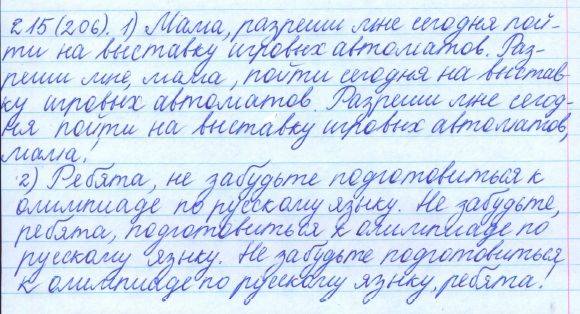 215(206). 1) Мама, разреши мне сегодня пой-
ти на выставку игровых автоматов. Раз-
реши мне, мама, пойти сегодня на выстав-
ку игровых автоматов. Разреши мне сегод-
ня пойти на выставку игровых автоматов,
мама!
2) Ребята, не забудьте подготовиться к
олимпиаде по русскому языку. Не забудьте,
ребята, подготовиться к олимпиаде по
русскому языку. Не забудьте подготовиться
к олимпиаде по русскому языку, ребята!